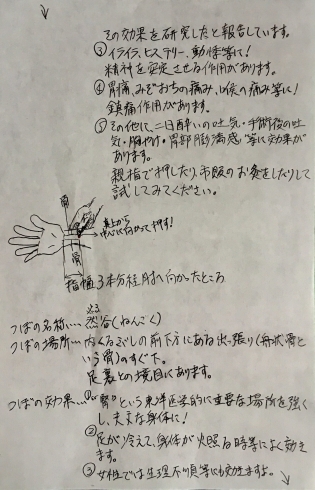 その効果を研究したと報告しています。
③イライラ、ヒステリー、動悸等に!
精神を安定させる作用があります。
④胃痛、みぞおちの痛み、口、喉の痛み等に!
鎮痛作用があります。
⑤その他に、二日酔いの吐気・手術後の吐
気・胸やけ・胃部膨満感"等に効果が
あります。
親指で押したり、市販のお灸をしたりして
試してみてください。
骨
真上から
中心に向かって押す!
骨
指幅3本分程肘へ向かったところ
つぼの名称…然谷(ねんこく)
つぼの場所…内くるぶしの前下方にある出っ張り(舟状骨と
いう骨)のすぐ下。
足裏との境目にあります。
つぼの効果…①"腎"という東洋医学的に重要な場所を強く
し、丈夫な身体に!
②足が冷えて、身体が火照る時等によく効き
ます。
③女性では生理不順等にも効きますよ。